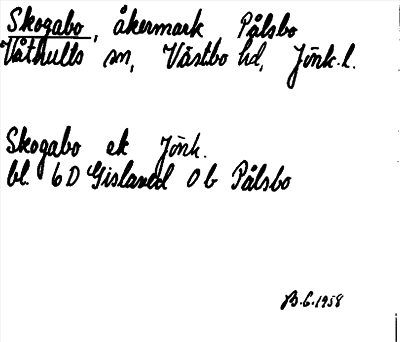 Skogabo, åkermark Pålsbo
Våthults sn, Västbo hd, Jönk. l.
Skogabo ek Jönk.
bl. 6D Gislaved 0b Pålsbo
B.G. 1958